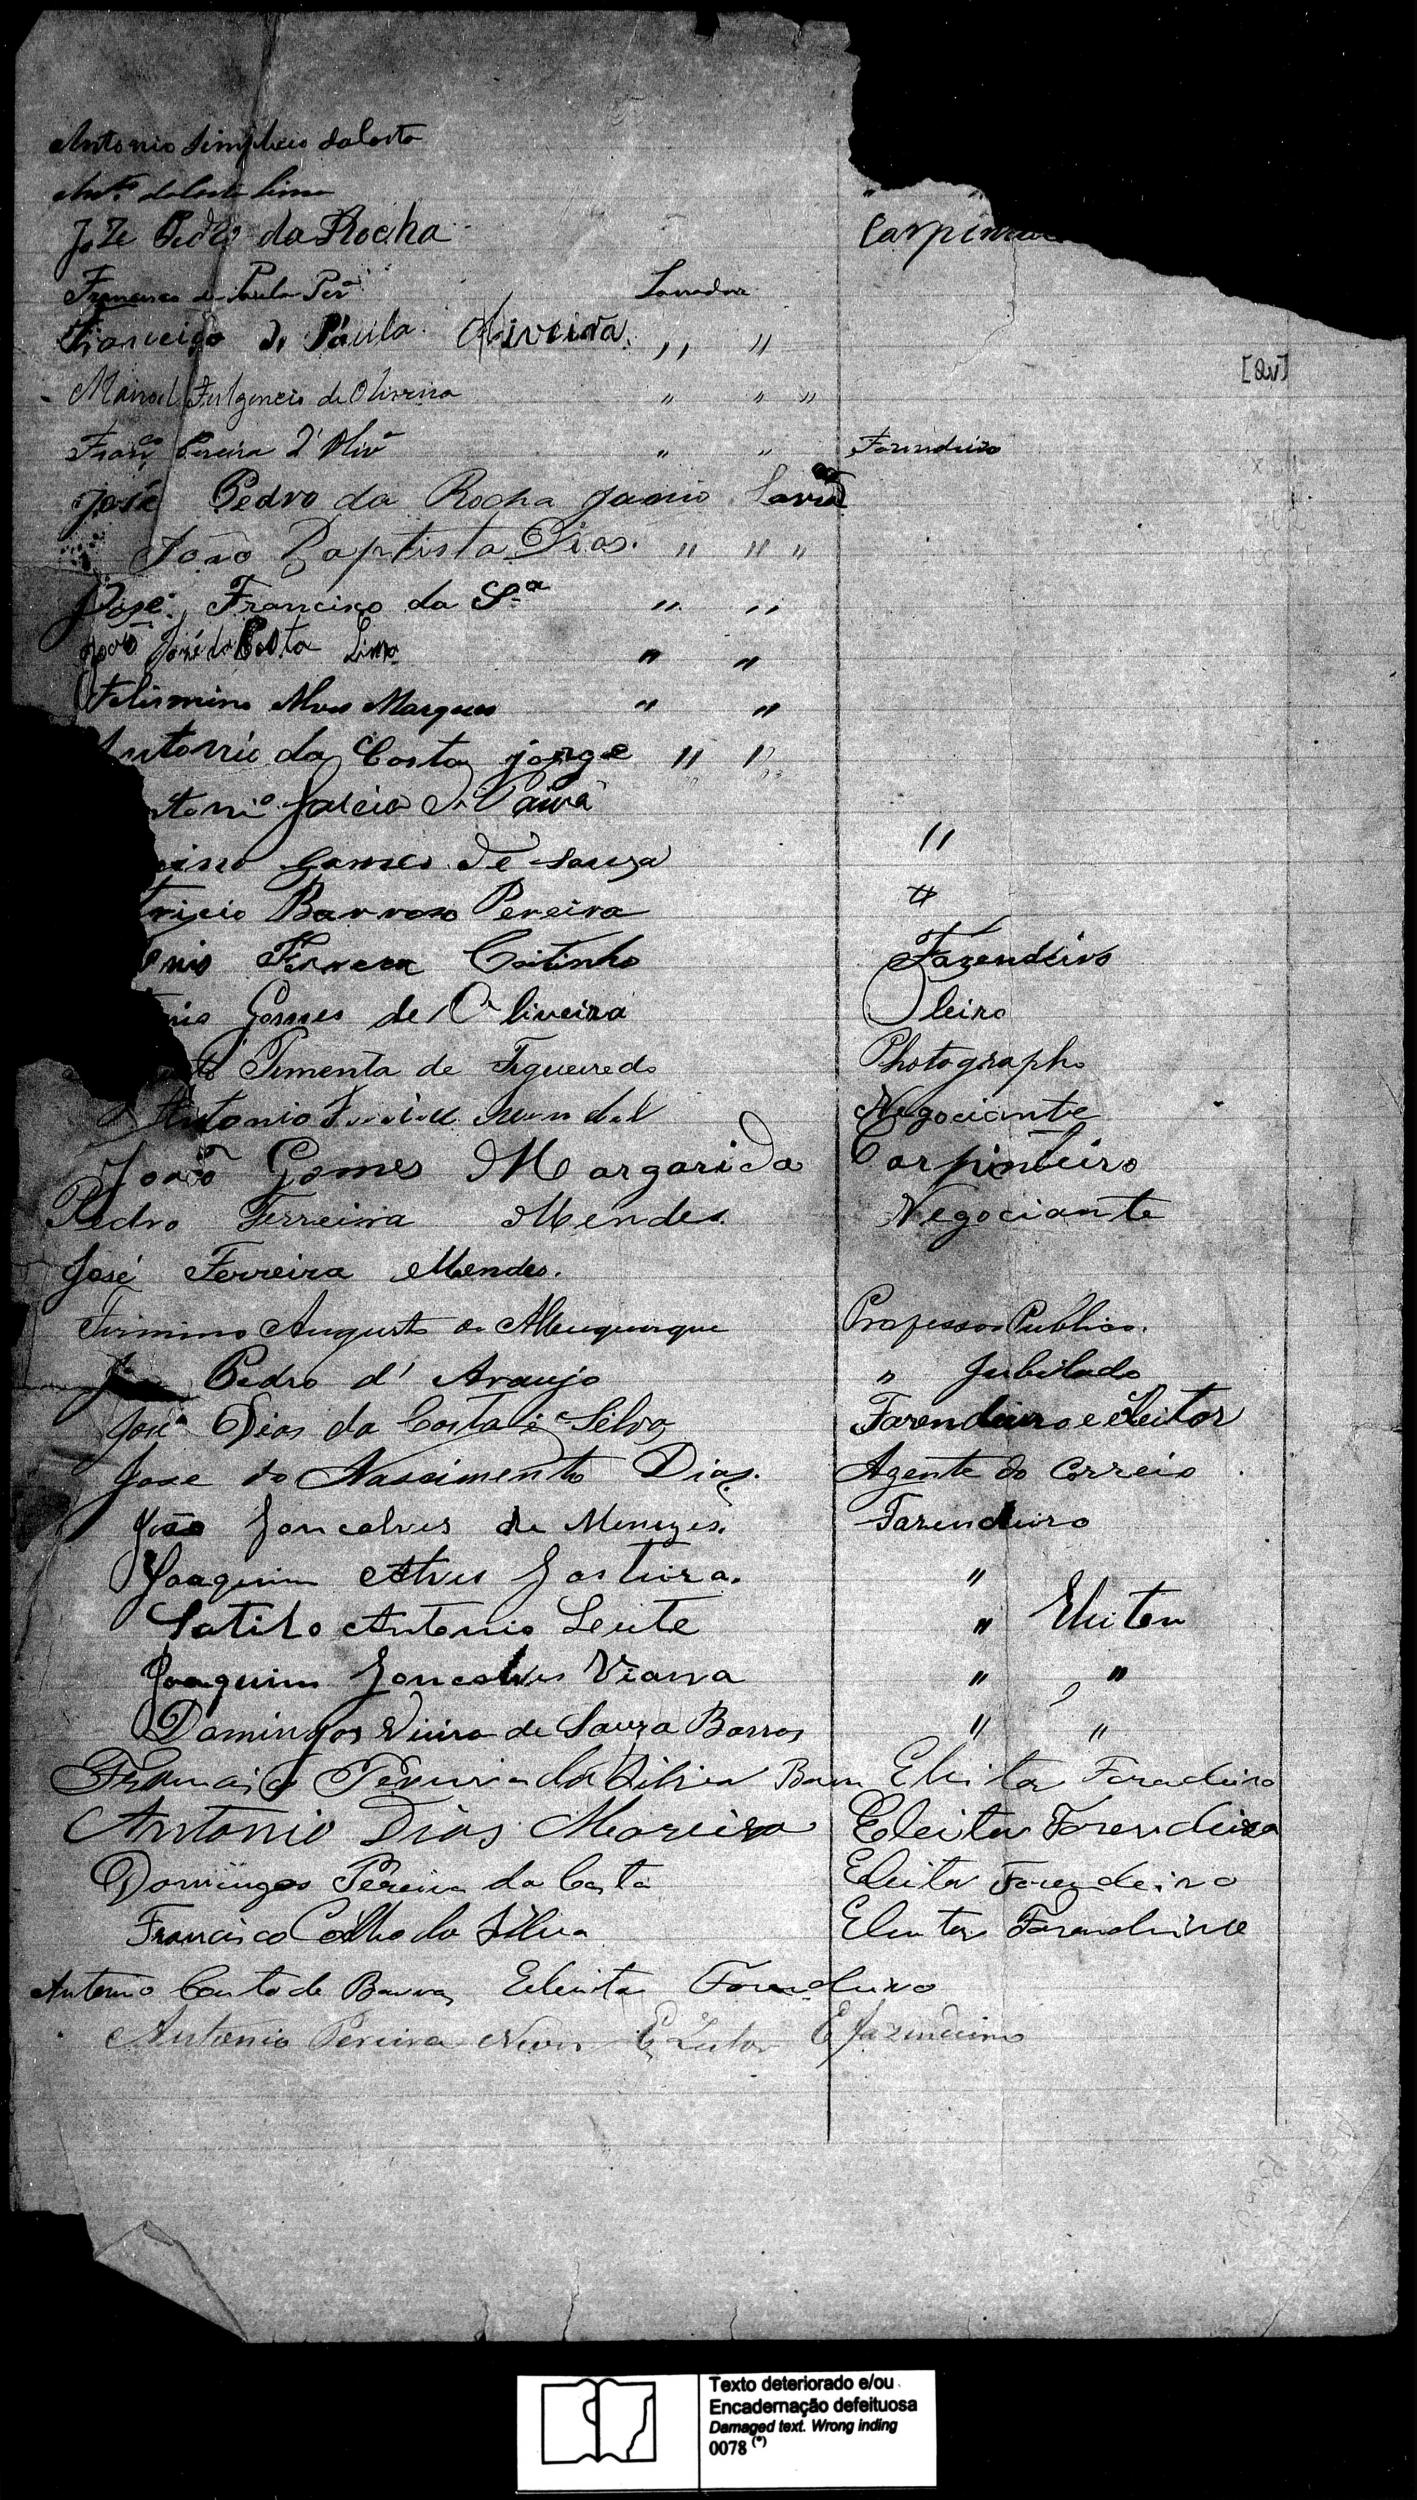 Antonio Simplicio da Costa
Antº da Costa Lima "
Joze Pedro da Rocha Carpin
Francisco de Paula Perª Lavrador
Francisco de Paula Oliveira " "
[2v]
Manoel Fulgencio de Oliveira " " "
Francº Pereira d'Olivª " " Fazendeiro
José Pedro da Rocha Lavra
João Baptista Dias. " " "
José Francisco da Sª " "
José da Costa Lima " "
Felismino Alves Marques " "
Antonio da Costa jorge " "
de Paiva
Gomes de Souza "
Barrozo Pereira "
Coitinho Fazendeiro
Gomes de Oliveira Oleiro
Pimenta de Figueiredo Photographo
Antonio Negociante
João Gomes Margarida Carpinteiro
Pedro Ferreira Mendes. Negociante
José Ferreira Mendes.
Firmino Augusto de Albuquerque Professor Publico.
Pedro d'Araujo " Jubilado
José Dias da Costa e Silva Fazendeiro e eleitor
Jose do Nascimento Dias. Agente do Correio
João Goncalves de Menezes. Fazendeiro
Joaquim Alves "
Satilo Antonio Leite " Eleitor
Joaquim Goncalves Viana " "
Domingos Vieira de Souza Barros " "
da Silva Eleitor Fazendeiro
Antonio Dias Moreira Eleitor Fazendeiro
Domingos Pereira da Costa Eleitor Fazendeiro
Francisco Coelho da Silva Eleitor Fazendeiro
Antonio Couto de Barros Eleitor Fazendeiro
Antonio Pereira Neves Eleitor E fazendeiro
Texto deteriorado e/ou
Encadernação defeituosa
Damaged text. Wrong inding
0078 (*)